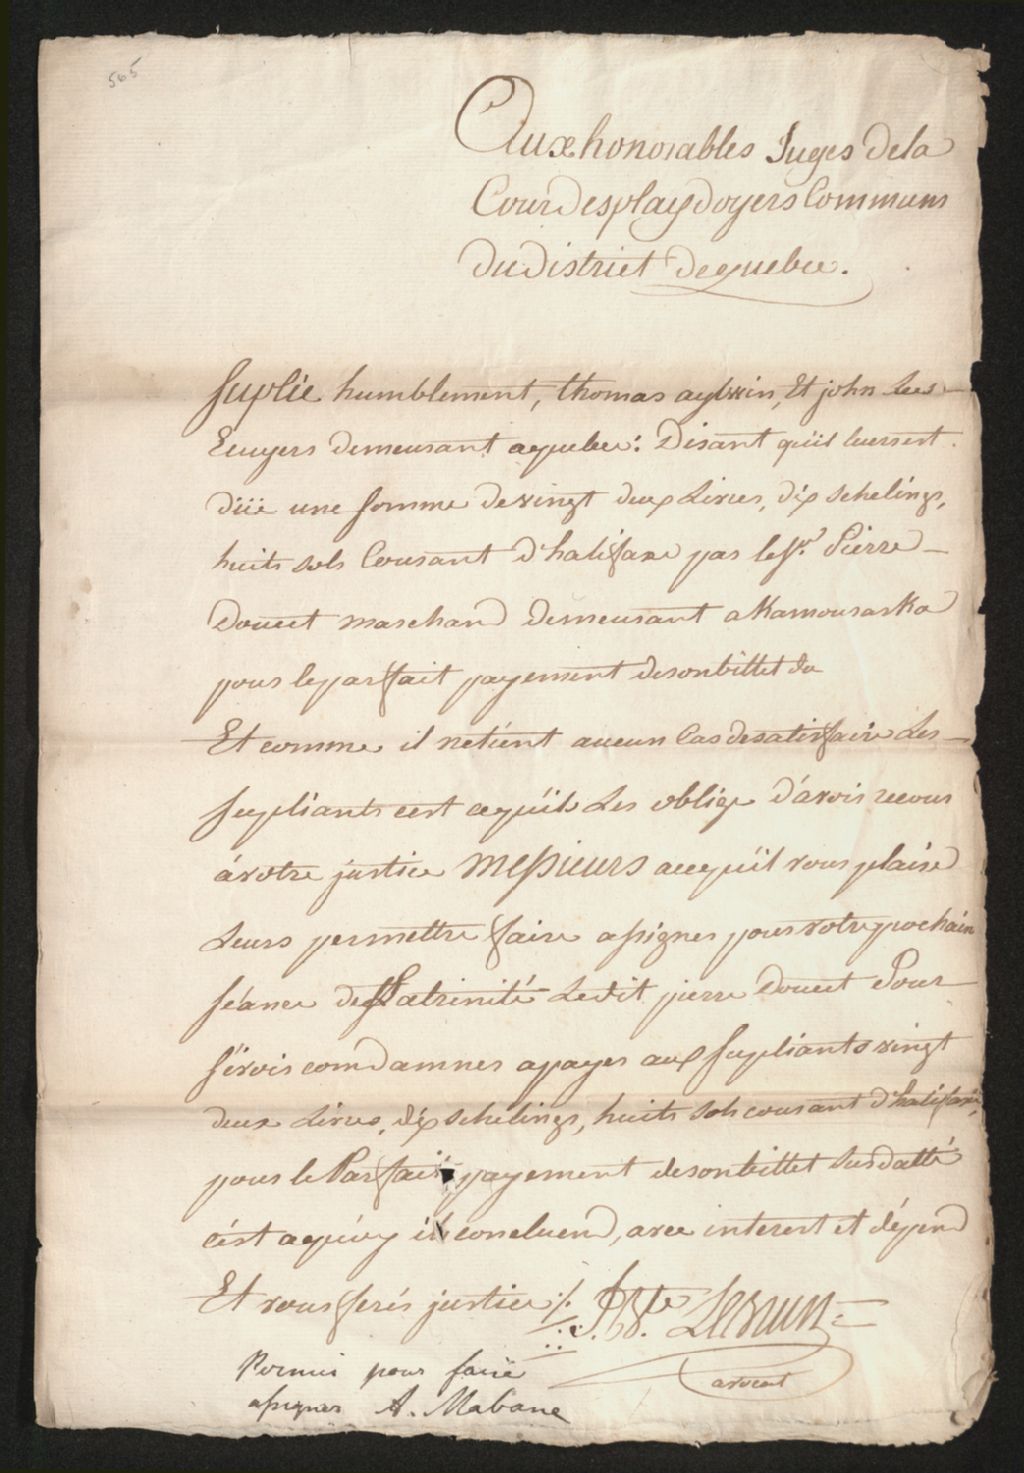 565
Aux honorables Juges de la
Cour des playdoyers Communs
du district de quebec.
Suplie humblement, thomas aylwin, Et john Lees
Ecuyers demeurant a quebec: Disant qu'il leur sert
düe une somme de vingt deux Livres, dix schelings,
huits sols Courant d'halifaxe par le Sr. Pierre
Doucet marchand demeurant a Kamouraska
pour le parfait payement de son billet du
Et comme il ne tient aucun Cas de satisfaire Les
supliants cest ce qu'ils Les oblige d'avoir recour
á votre justice Messieurs a ce qu'il vous plaise
Leurs permettre faire assigner pour votre prochain
séance de la trinité Ledit pierre Doucet Pour
sévoir comdamner a payer aux supliants vingt
deux Livres, dix schelings, huits sols courant d'halifaxe,
pour le Parfait payement de son billet Susdatté
cést a quoy ils concluend, avec interest et dépend
Et vous ferés justice ./. J. Bte. LeBrun
avocat
Permis pour faire
assigner A. Mabane